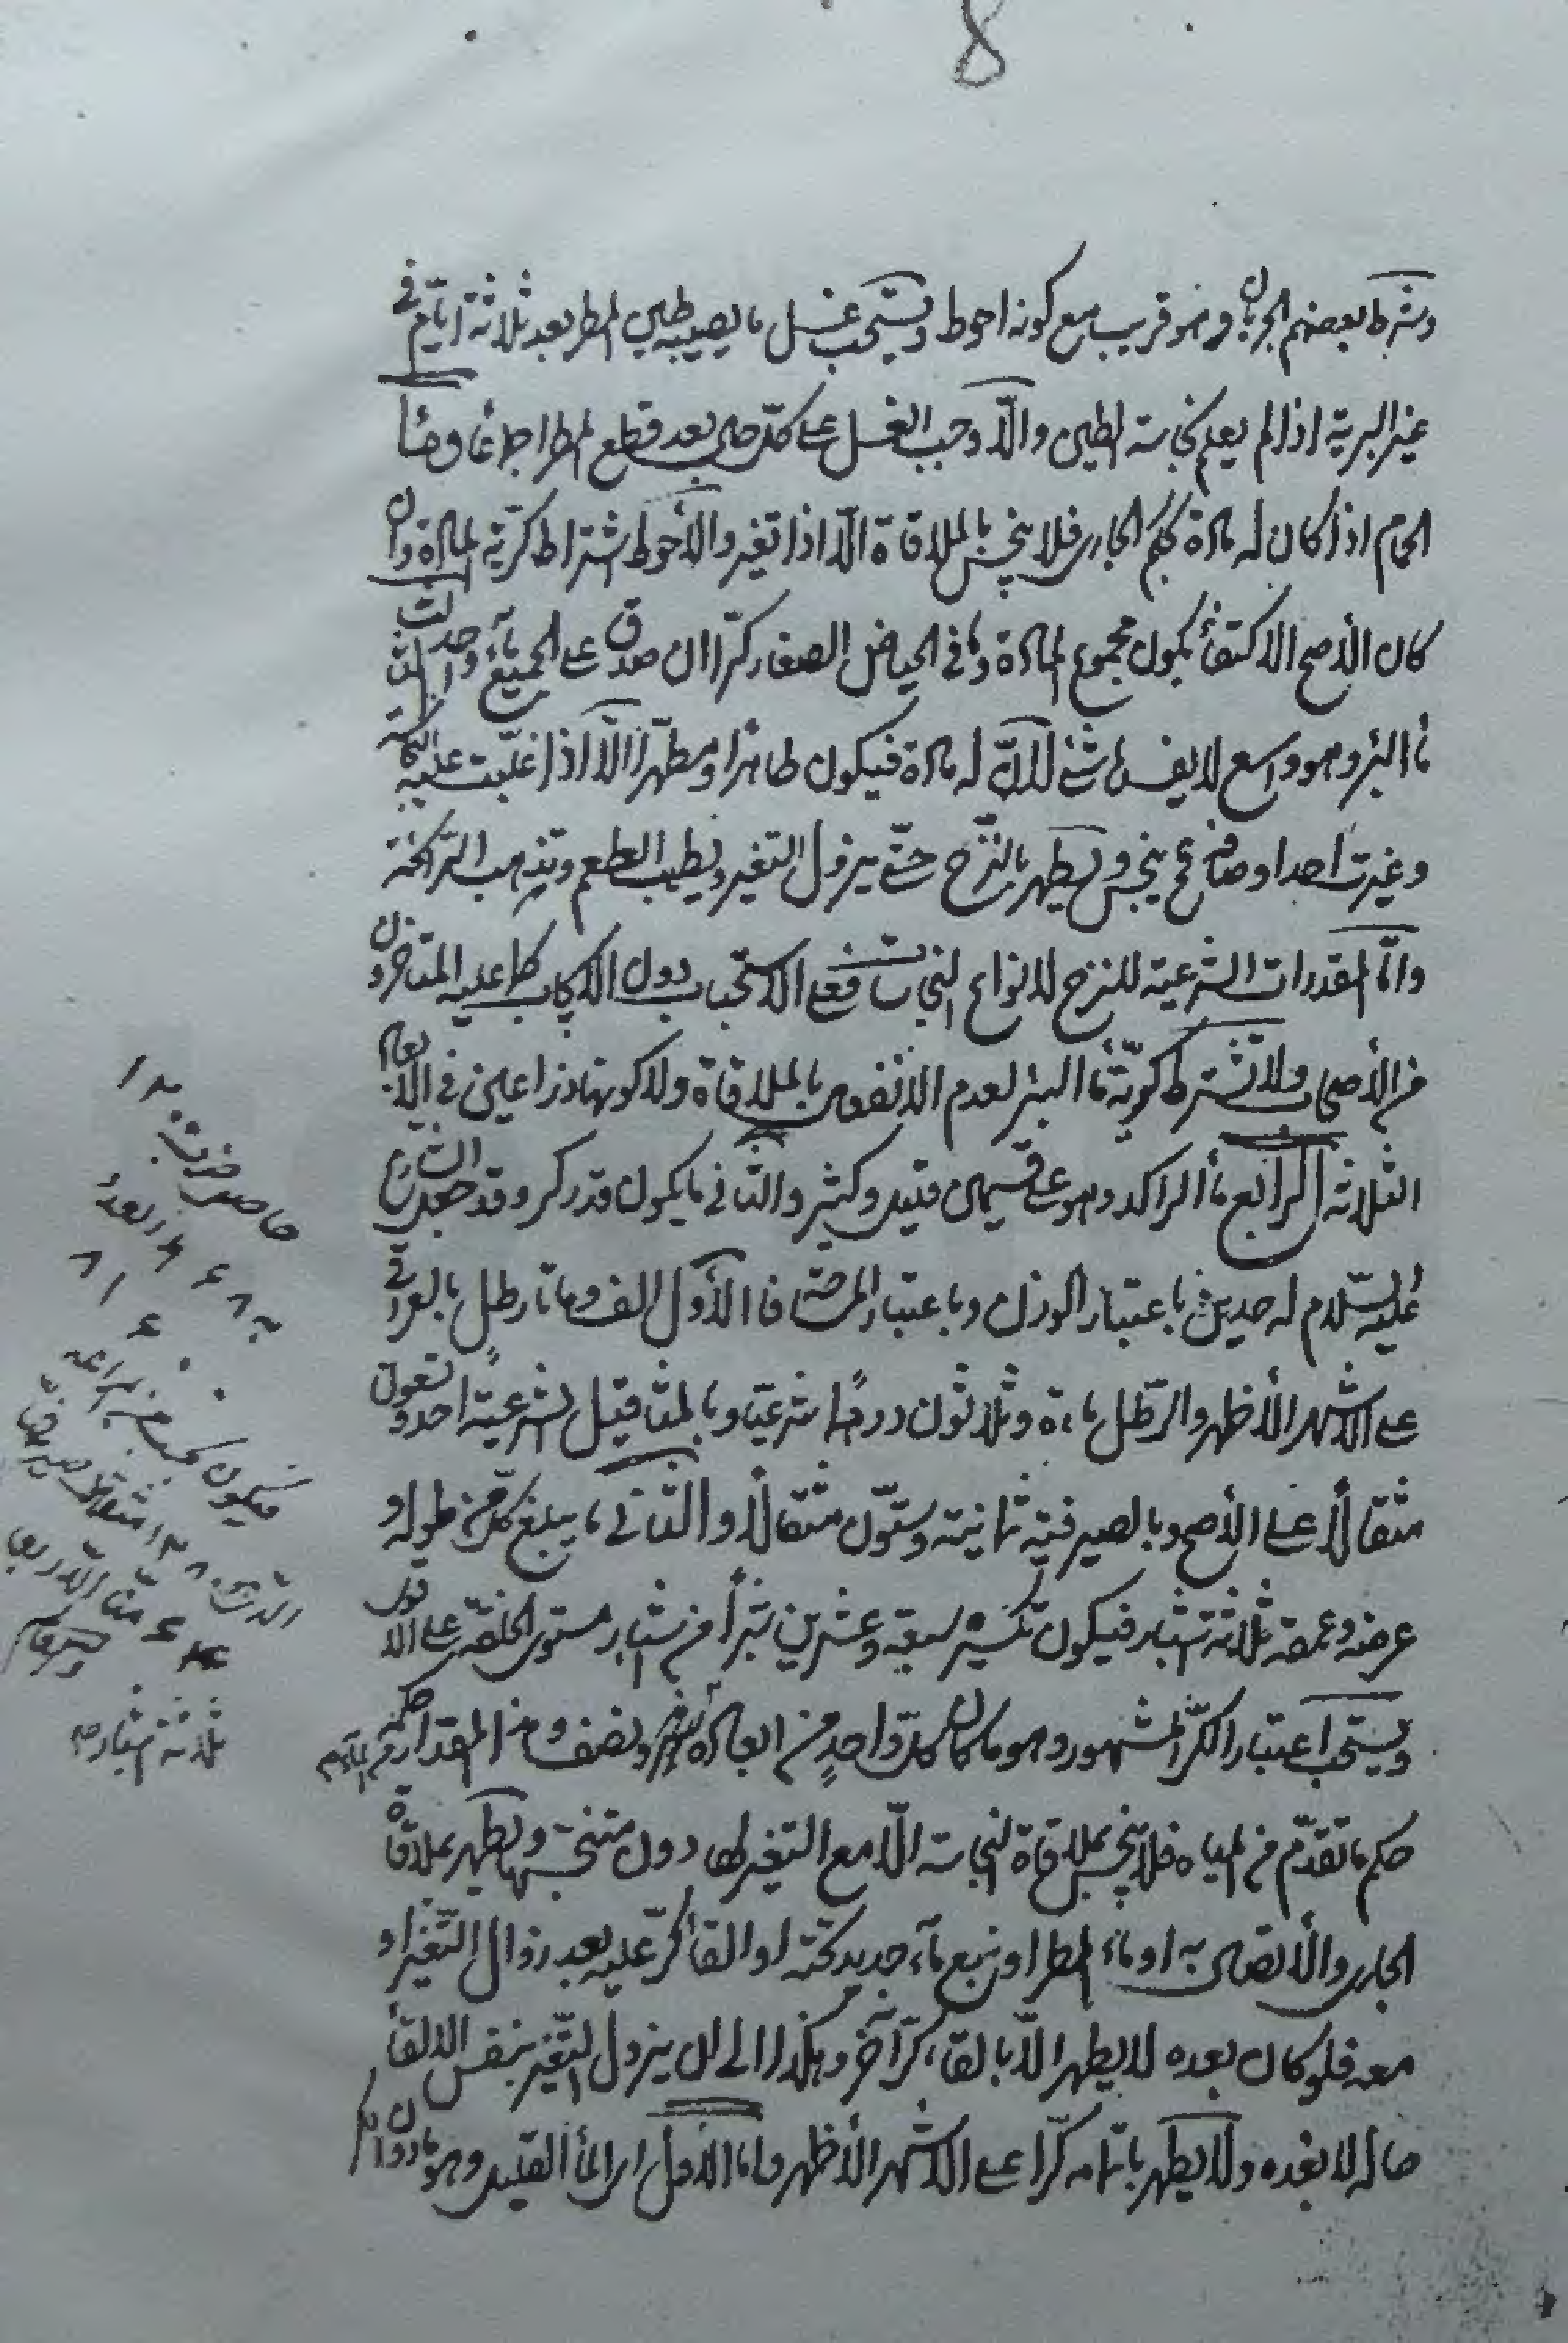 8
وشرط بعضهم الجريان وهو قريب مع كونه احوط ويستحب غسل ما يصيبه طين المطر بعد ثلاثة ايام في
غير البرية اذا لم يعلم نجاسة الطين والّا وجب الغسل على كلّ حال بعد قطع المطر اجماعًا
الحمام اذا كان له مادة كحكم الجاري فلا ينجس بالملاقاة الّا اذا تغير والأحوط اشتراط كريّة المادة وان
كان الأصح الاكتفاء بكون مجموع المادة وما في الحياض الصغار كرّا ان صدق على الجميع ماء واحد الثالث
ماء البئر وهو واسع لا يفسده شئ لأنّ له مادة فيكون طاهرًا ومطهرًا الّا اذا غلبت عليه النجاسة
وغيرت احد اوصافه فح ينجس ويطهر بالنّزح حتّى يزول التغير ويطيب الطعم وتذهب الرائحة
وامّا المقدرات الشرعية للنزح لانواع النجاسات فعلى الاستحباب دون الايجاب كما عليه المتأخرون
من الأصحاب ولا يشترط كريّة ماء البئر لعدم الانفعال بالملاقاة ولا كونها ذراعين في الأبعاد
الثلاثة الرابع ماء الراكد وهو على قسمين قليل وكثير والثاني ما يكون قدر كر وقد جعل الشارع
عليه السّلام له حدين باعتبار الوزن وباعتبار المساحة فالأول الف ومائتا رطل بالعراقي
على الاشهر الأظهر والرّطل مائة وثلاثون درهمًا شرعيّا وبالمثاقيل الشرعية احد وتسعون
مثقالًا على الأصح وبالصيرفية ثمانية وستّون مثقالًا والثاني ما يبلغ كلّ من طوله و
عرضه وعمقه ثلاثة اشبار فيكون تكسيره سبعة وعشرين شبرًا من اشبار مستوى الخلقة على الاقوى
ويستحب اعتبار الكرّ المشهور وهو ما كان كلّ واحدٍ من ابعاده ثلاثة اشبار ونصف وهذا المقدار من الماء حكمه
حكم ما تقدّم من المياه فلا ينجس بملاقاة النجاسة الّا مع التغير لها دون متنجسها ويطهر بملاقاة
الجاري والأتصال به او ماء المطر او نبع ماء جديد تحته او القاء كرّ عليه بعد زوال التّغير او
معه فلو كان بعده لا يطهر الّا بالقاء كرّ آخر وهكذا الى ان يزول التّغير بنفس الالقاء
حاله لا بعده ولا يطهر باتمامه كرّا على الاشهر الأظهر واما الأول اى الماء القليل وهو ما دون الكر
حاصل ضرب
فيكون
مثقالًا صيرفيّا
ثلاثة اشبار